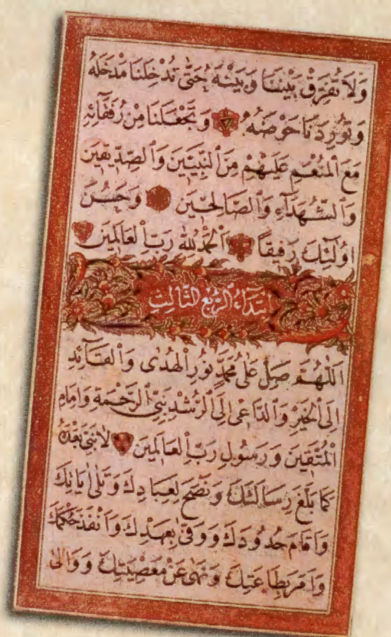 وَلَا تُفَرِّقْ بَيْنَنَا وَبَيْنَهُ حَتَّى تُدْخِلَنَا مُدْخَلَهُ
وَتُورِدَنَا حَوْضَهُ وَتَجْعَلَنَا مِنْ رُفَقَائِهِ
مَعَ الْمُنْعَمِ عَلَيْهِمْ مِنَ النَّبِيِّينَ وَالصِّدِّيقِينَ
وَالشُّهَدَاءِ وَالصَّالِحِينَ وَحَسُنَ
أُولَئِكَ رَفِيقًا اَلْحَمْدُ لِلّٰهِ رَبِّ الْعَالَمِينَ
ابْتِدَاءُ الرُّبْعِ الثَّالِثِ
اَللّٰهُمَّ صَلِّ عَلَى مُحَمَّدٍ نُورِ الْهُدَى وَالْقَائِدِ
إِلَى الْخَيْرِ وَالدَّاعِي إِلَى الرُّشْدِ نَبِيِّ الرَّحْمَةِ وَإِمَامِ
الْمُتَّقِينَ وَرَسُولِ رَبِّ الْعَالَمِينَ لَا نَبِيَّ بَعْدَهُ
كَمَا بَلَّغَ رِسَالَتَكَ وَنَصَحَ لِعِبَادِكَ وَتَلَى آيَاتِكَ
وَأَقَامَ حُدُودَكَ وَوَفَى بِعَهْدِكَ وَأَنْفَذَ حُكْمَكَ
وَأَمَرَ بِطَاعَتِكَ وَنَهَى عَنْ مَعْصِيَتِكَ وَوَالَى